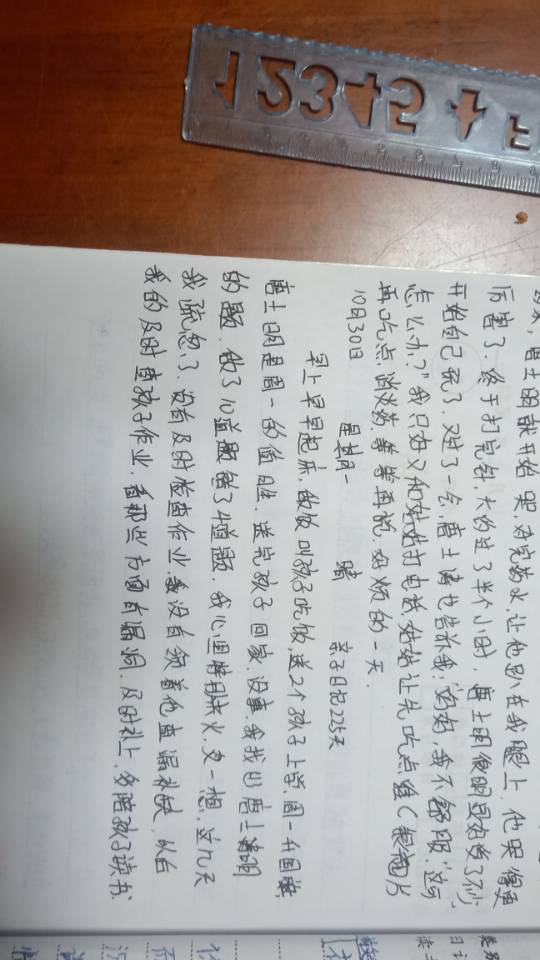 12345+F
唐士明就开始哭。打完药水,让他趴在我腿上,他哭得更
厉害了。终于打完针,大约过了半个小时,唐士明明显好多了,
开始自己玩了。又过了一会,唐士涛也告诉我:“妈妈,我不舒服。”这可
怎么办?”我只好又和姑姑打电话,姑姑让先吃点药(银翘片
再吃点消炎药,等等再说,好烦的一天。
10月30日 星期一 晴 亲子日记225天
早上早早起床,做饭叫孩子吃饭,送2个孩子上学,周一升国旗,
唐士明是周一的值日生。送完孩子回家,没事,我找出唐士明
的题,做了10道题错了4道题。我心里特别上火,又一想,这几天
我疏忽了,没有及时检查作业,我没有领着他查漏补缺,以后
我的及时查孩子作业,看那些方面有漏洞,及时补上,多陪孩子读书。